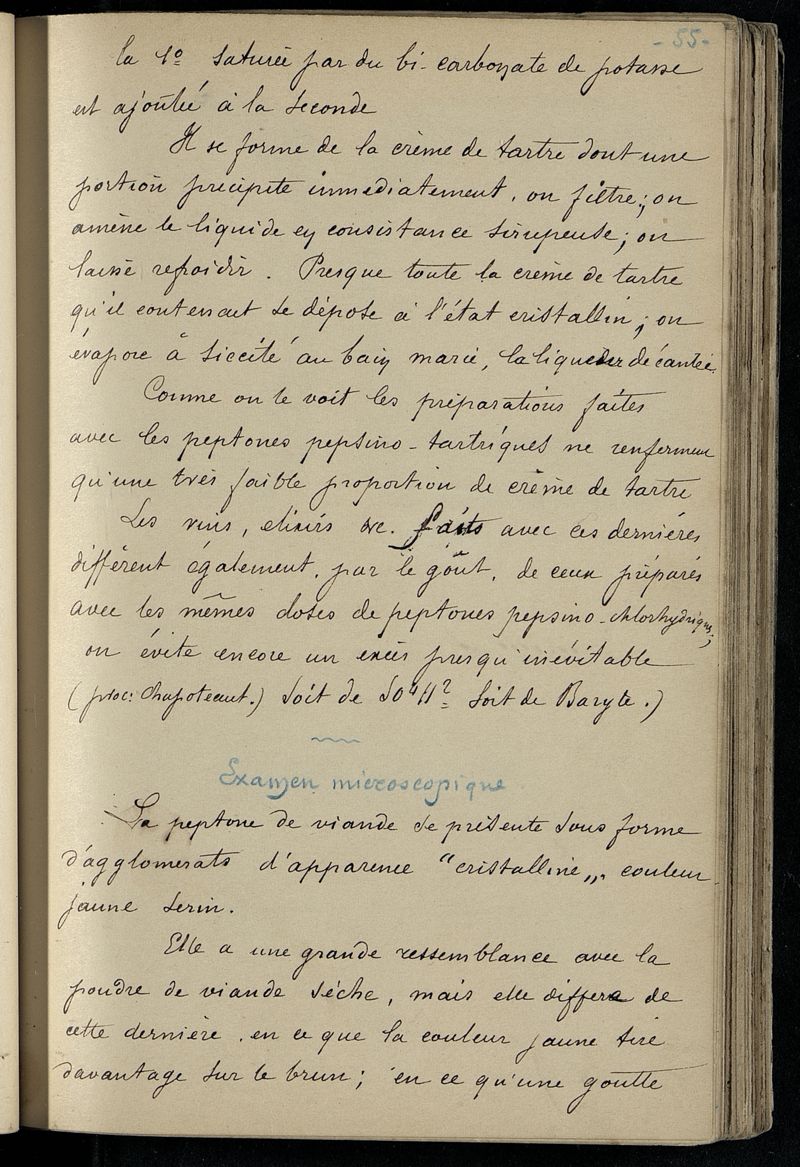 - 55 -
la 1º saturée par du bi-carbonate de potasse
est ajoutée à la seconde
Il se forme de la crème de tartre dont une
portion précipite immédiatement, on filtre ; on
amène le liquide en consistance sirupeuse ; on
laisse refroidir. Presque toute la crème de tartre
qu'il contenait se dépose à l'état cristallin ; on
évapore à siccité au bain marie, la liqueur décantée.
Comme on le voit les préparations faites
avec les peptones pepsino-tartriques ne renferment
qu'une très faible proportion de crème de tartre
Les vins, elixirs &c. faits avec ces dernières
diffèrent également, par le goût, de ceux préparés
avec les mêmes doses de peptones pepsino-chlorhydriques ;
on évite encore un excès presqu'inévitable
(proc: Chapoteaut.) Soit de SO⁴H² Soit de Baryte.)
Examen microscopique
La peptone de viande se présente sous forme
d'agglomerats d'apparence "cristalline„. couleur
jaune serin.
Elle a une grande ressemblance avec la
poudre de viande sèche, mais elle differe de
cette dernière, en ce que la couleur jaune tire
davantage sur le brun ; en ce qu'une goutte